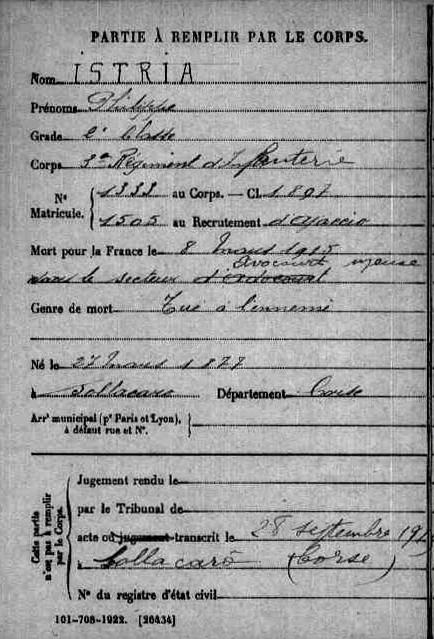 PARTIE À REMPLIR PAR LE CORPS.
Nom ISTRIA
Prénoms Philippe
Grade 2e Classe
Corps 3e Régiment d'Infanterie
N° Matricule. 1333 au Corps. — Cl. 1897
1505 au Recrutement d'Ajaccio
Mort pour la France le 8 mars 1915
Avocourt meuse
dans le secteur d'
Genre de mort Tué à l'ennemi
Né le 27 mars 1877
à Sollacaro Département Corse
Arrt municipal (pr Paris et Lyon), à défaut rue et N°.
Cette partie n'est pas à remplir par le Corps.
Jugement rendu le
par le Tribunal de
acte ou jugement transcrit le 28 septembre
à Sollacaro (Corse)
N° du registre d'état civil
101-708-1922. [26434]